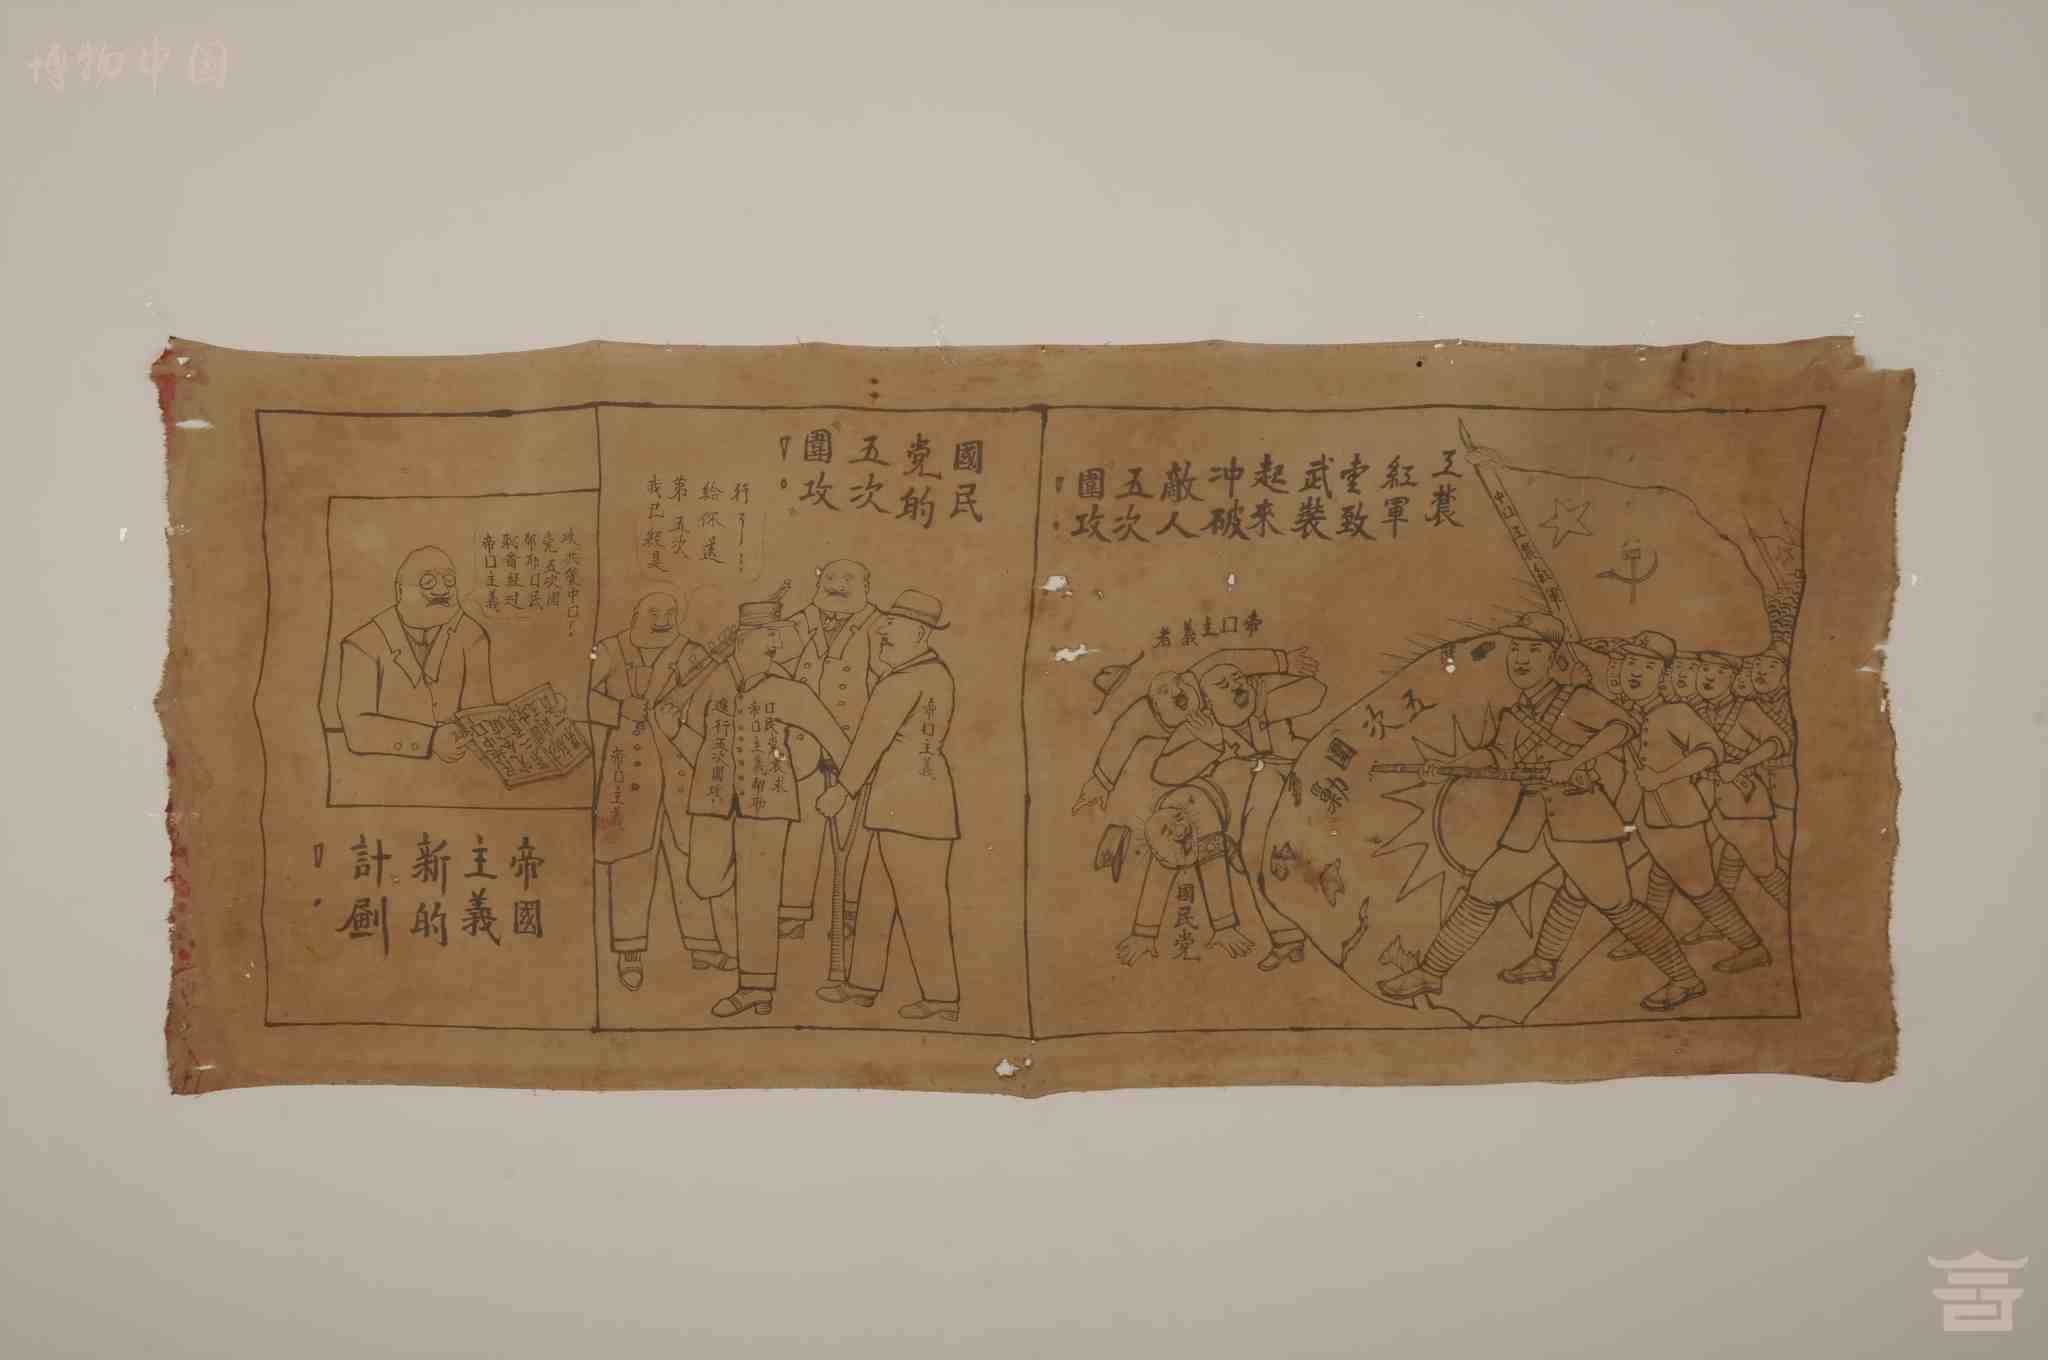 博物中国
帝國
主義
新的
計劃
!
帝囗主義
耿着經过
帮助囗民
党五次圍
攻共管中囗!
國民
党的
五次
圍攻
!
我已経是
第五次
給你送
行了……
帝囗主義
囗民党哀求
帝囗主義帮助
進行五次圍攻!
帝囗主義
工農
紅軍
壹致
武裝
起來
冲破
敵人
五次
圍攻
!
中囗工農紅軍
帝囗主義者
五次圍剿
國民党